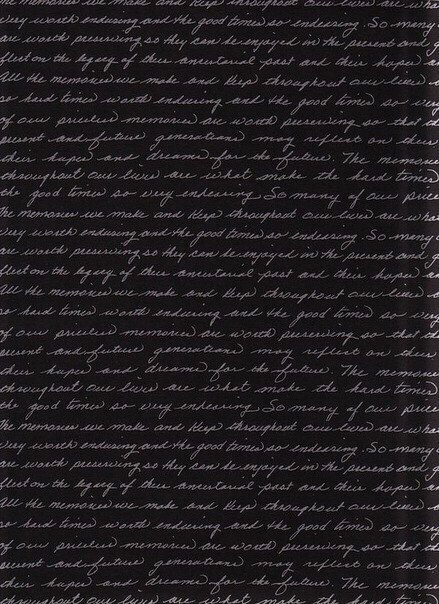 the memories we make and keep throughout our lives are wha
very worth enduring and the good times so endearing. So many
are worth preserving so they can be enjoyed in the present and
flect on the legacy of their ancestorial past and their hopes
All the memories we make and keep throughout our lives
so hard times worth enduring and the good times so very
of our priceless memories are worth preserving so that
present and future generations may reflect on their
their hopes and dreams for the future. The memories
throughout our lives are what make the hard times
the good times so very endearing So many of our price
the memories we make and keep throughout our lives are wha
very worth enduring and the good times so endearing. So many
are worth preserving so they can be enjoyed in the present and
flect on the legacy of their ancestorial past and their hopes
All the memories we make and keep throughout our lives
so hard times worth enduring and the good times so very
of our priceless memories are worth preserving so that
present and future generations may reflect on their
their hopes and dreams for the future. The memories
throughout our lives are what make the hard times
the good times so very endearing So many of our price
the memories we make and keep throughout our lives are wha
very worth enduring and the good times so endearing. So many
are worth preserving so they can be enjoyed in the present and
flect on the legacy of their ancestorial past and their hopes
All the memories we make and keep throughout our lives
so hard times worth enduring and the good times so very
of our priceless memories are worth preserving so that
present and future generations may reflect on their
their hopes and dreams for the future. The memories
throughout our lives are what make the hard times